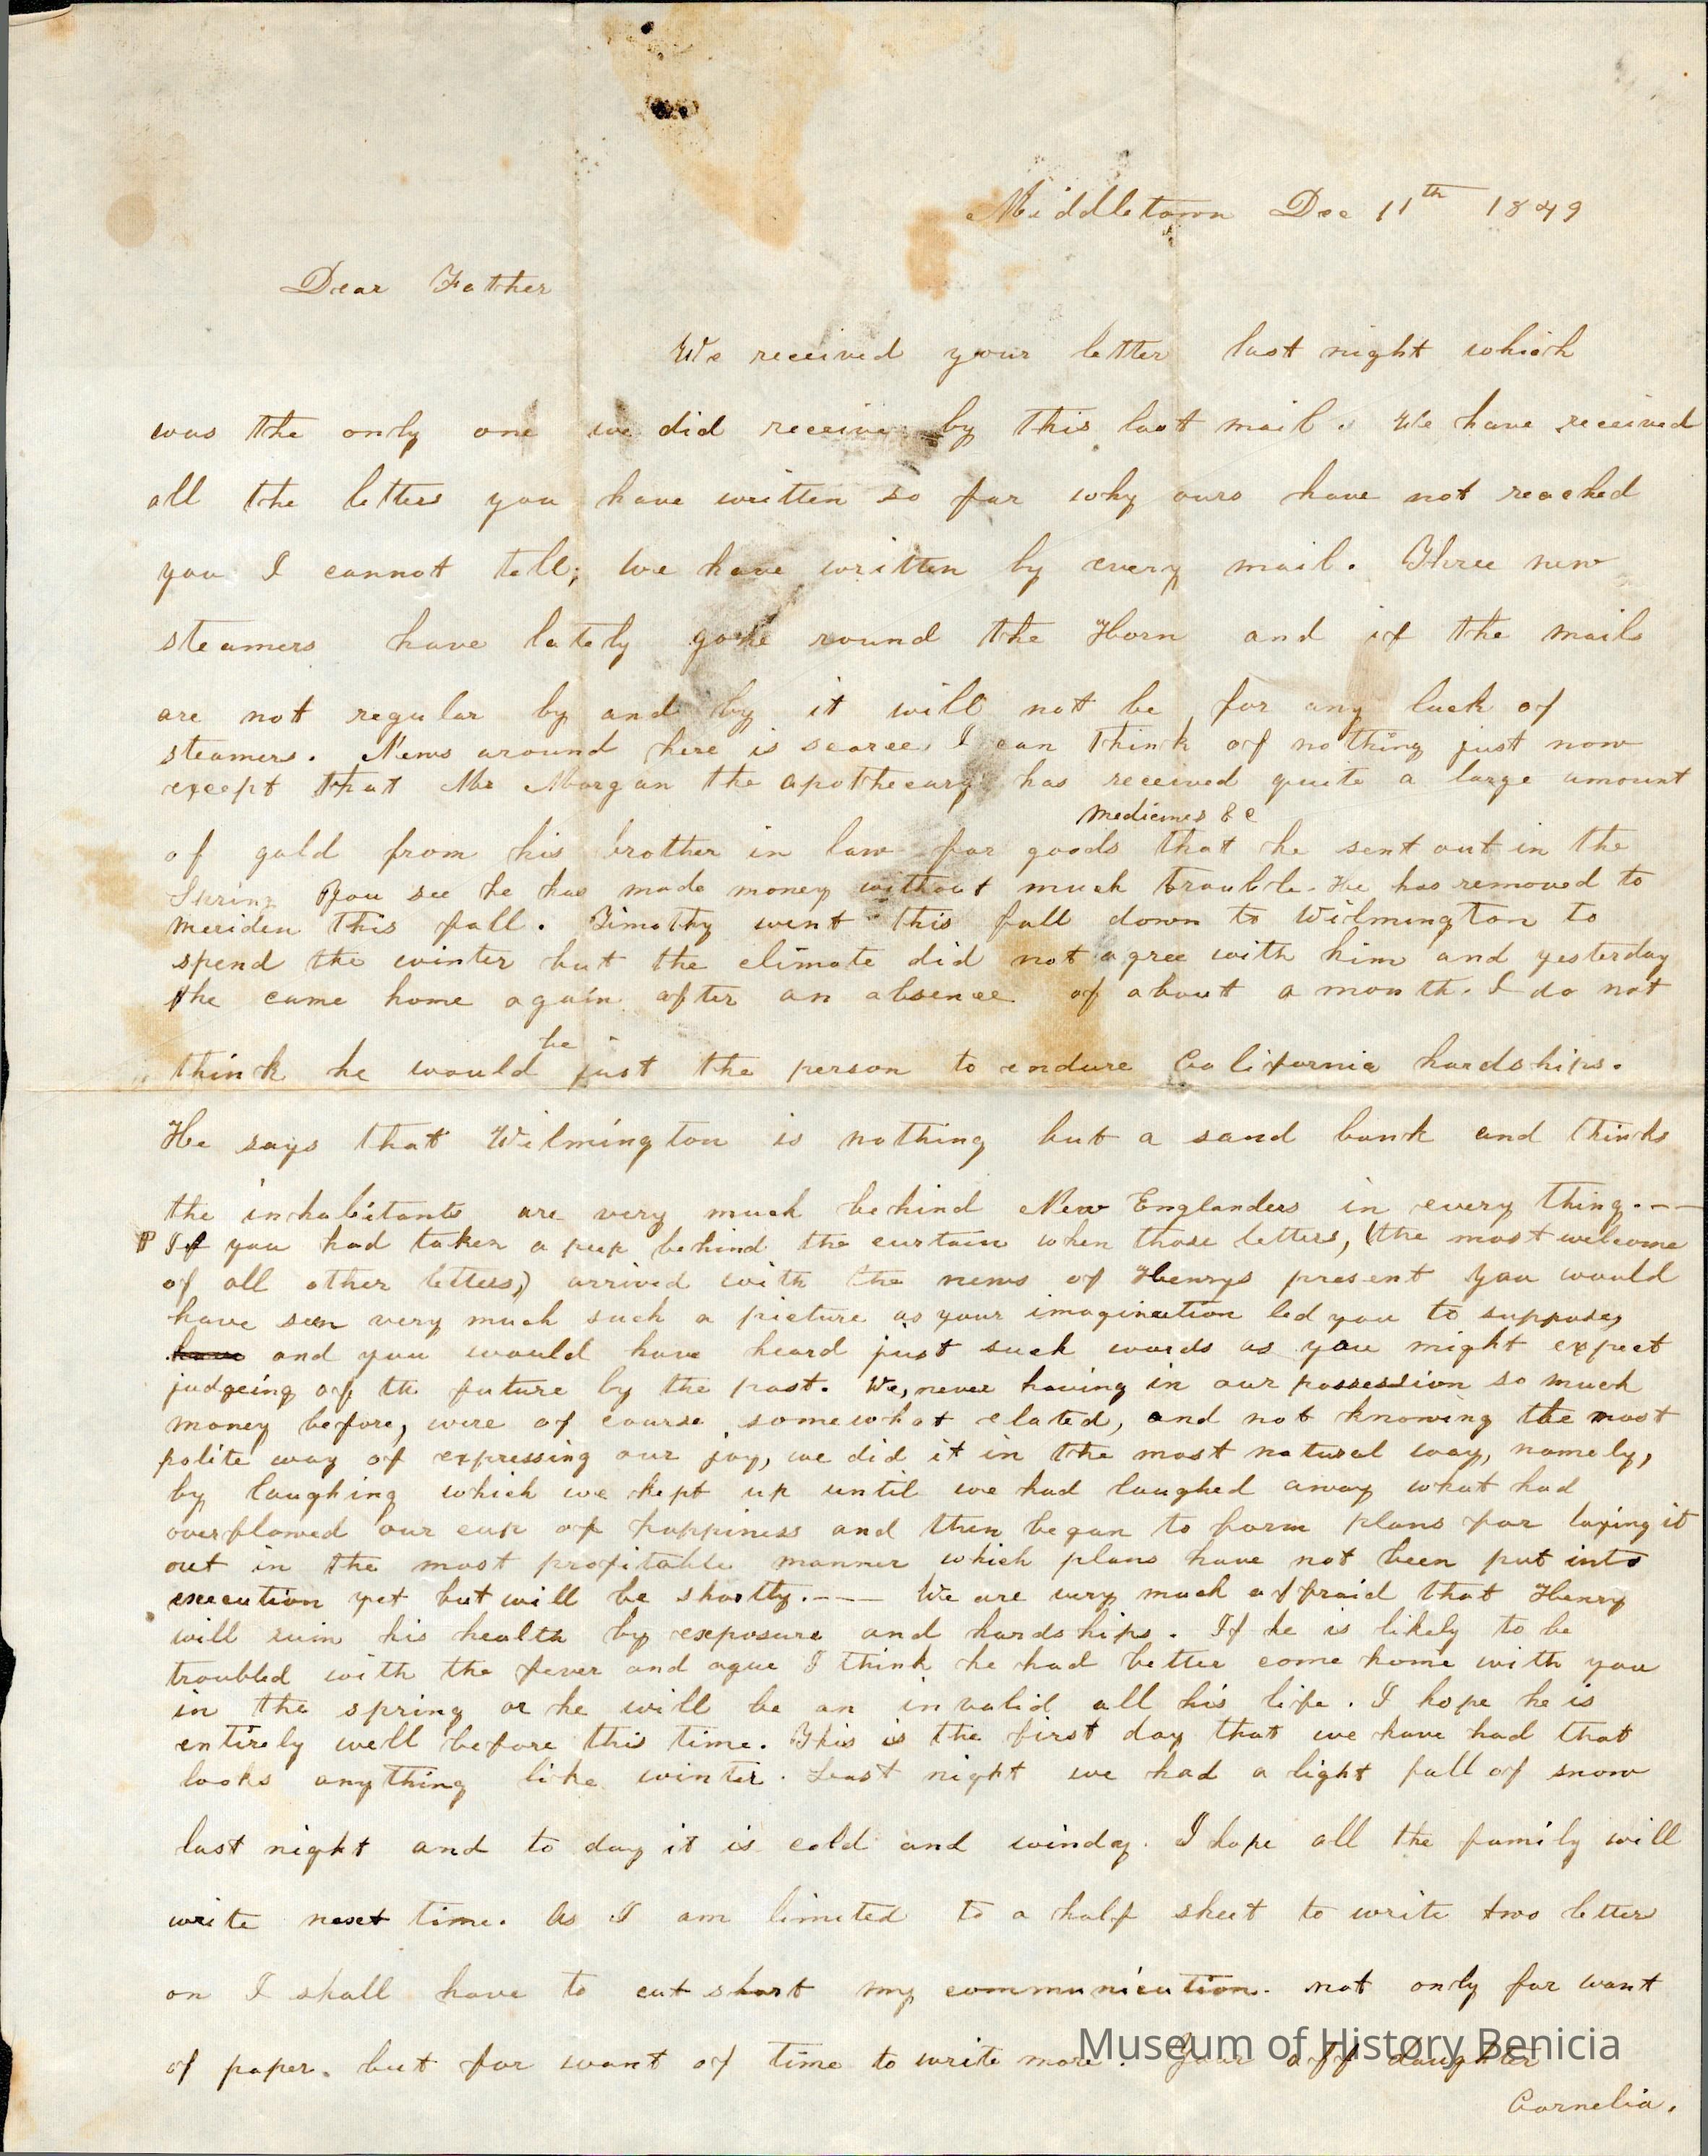 Middletown Dec 11th 1849
Dear Father
We received your letter last night which
was the only one we did receive by this last mail. We have received
all the letters you have written so far why ours have not reached
you I cannot tell; we have written by every mail. Three new
steamers have lately gone round the Horn and if the mails
are not regular by and by it will not be for any lack of
steamers. News around here is scarce, I can think of nothing just now
except that Mr Morgan the apothecary has received quite a large amount
medicines &c
of gold from his brother in law for goods that he sent out in the
Spring You see he has made money without much trouble. He has removed to
Meriden this fall. Timothy went this fall down to Wilmington to
spend the winter but the climate did not agree with him and yesterday
he came home again after an absence of about a month. I do not
be
think he would just the person to endure California hardships.
He says that Wilmington is nothing but a sand bank and thinks
the inhabitants are very much behind New Englanders in every thing.--
If you had taken a peep behind the curtain when those letters, (the most welcome
of all other letters,) arrived with the news of Henrys present you would
have seen very much such a picture as your imagination led you to suppose,
have and you would have heard just such words as you might expect
judgeing of the future by the past. We, never having in our possession so much
money before, were of course somewhat elated, and not knowing the most
polite way of expressing our joy, we did it in the most natural way, namely,
by laughing which we kept up until we had laughed away what had
overflowed our cup of happiness and then began to form plans for laying it
out in the most profitable manner which plans have not been put into
execution yet but will be shortly.--- We are very much affraid that Henry
will ruin his health by exposure and hardships. If he is likely to be
troubled with the fever and ague I think he had better come home with you
in the spring or he will be an invalid all his life. I hope he is
entirely well before this time. This is the first day that we have had that
looks anything like winter. Last night we had a light fall of snow
last night and to day it is cold and windy. I hope all the family will
write next time. As I am limited to a half sheet to write two letters
on I shall have to cut short my communication. not only for want
of paper. but for want of time to write more. Your aff daughter
Cornelia.
Museum of History Benicia